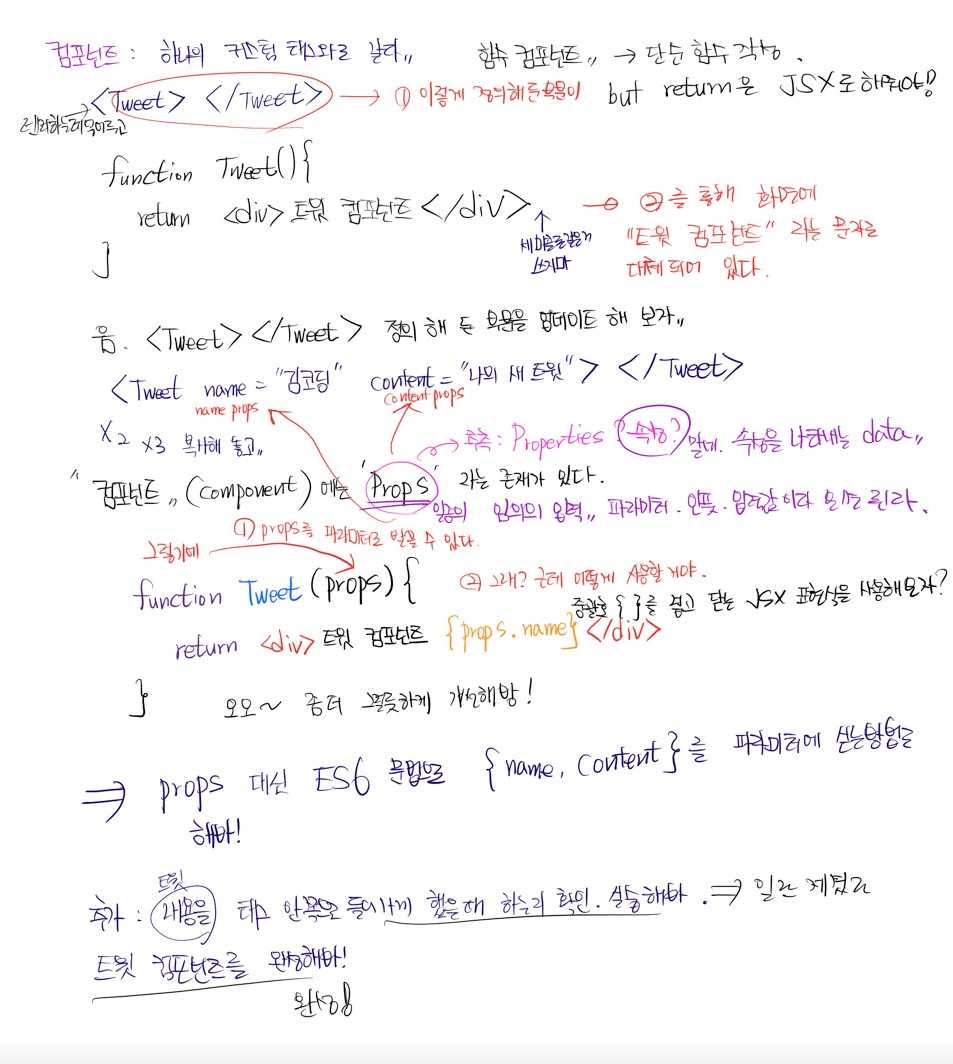 컴포넌트 : 하나의 커스텀 태그와도 같다,,
함수 컴포넌트,, → 단순 함수 작성.
<Tweet> </Tweet> → ① 이렇게 정의해둔
but return은 JSX로 해줘야!
function Tweet(){
return <div> 트윗 컴포넌트 </div>
→ ②를 통해 화면에
"트윗 컴포넌트" 라는 문자로
대체되어 있다.
쓰지마
}
음. <Tweet></Tweet> 정의 해 둔 업데이트 해 보자,,
<Tweet name = "김코딩" content = "나의 새 트윗"> </Tweet>
name props
content props
x2 x3 복사해 놓고,,
추측 : Properties (속성?) 맞네. 속성을 나타내는 data,,
"컴포넌트,, (component) 에는 'Props' 라는 존재가 있다.
일종의 임의의 입력,, 파라미터. 인풋. 입력값이라 불린다.
① props를 파라미터로 받을 수 있다.
그렇기에
function Tweet (props) {
② 그래? 근데 어떻게 사용할거야.
중괄호 { }를 열고 닫는 JSX 표현식을 사용해보자?
return <div> 트윗 컴포넌트 {props.name} </div>
}
오오~ 좀더 그럴듯하게 개선해봐!
⇒ props 대신 ES6 문법으로 {name, content}를 파라미터에 싣는방법로
해봐!
트윗
추가 : 내용을 태그 안쪽으로 들어가게 했을때 하는거 확인. 실습해봐. ⇒ 일단 제꼈고
트윗 컴포넌트를 완성해봐!
완성!